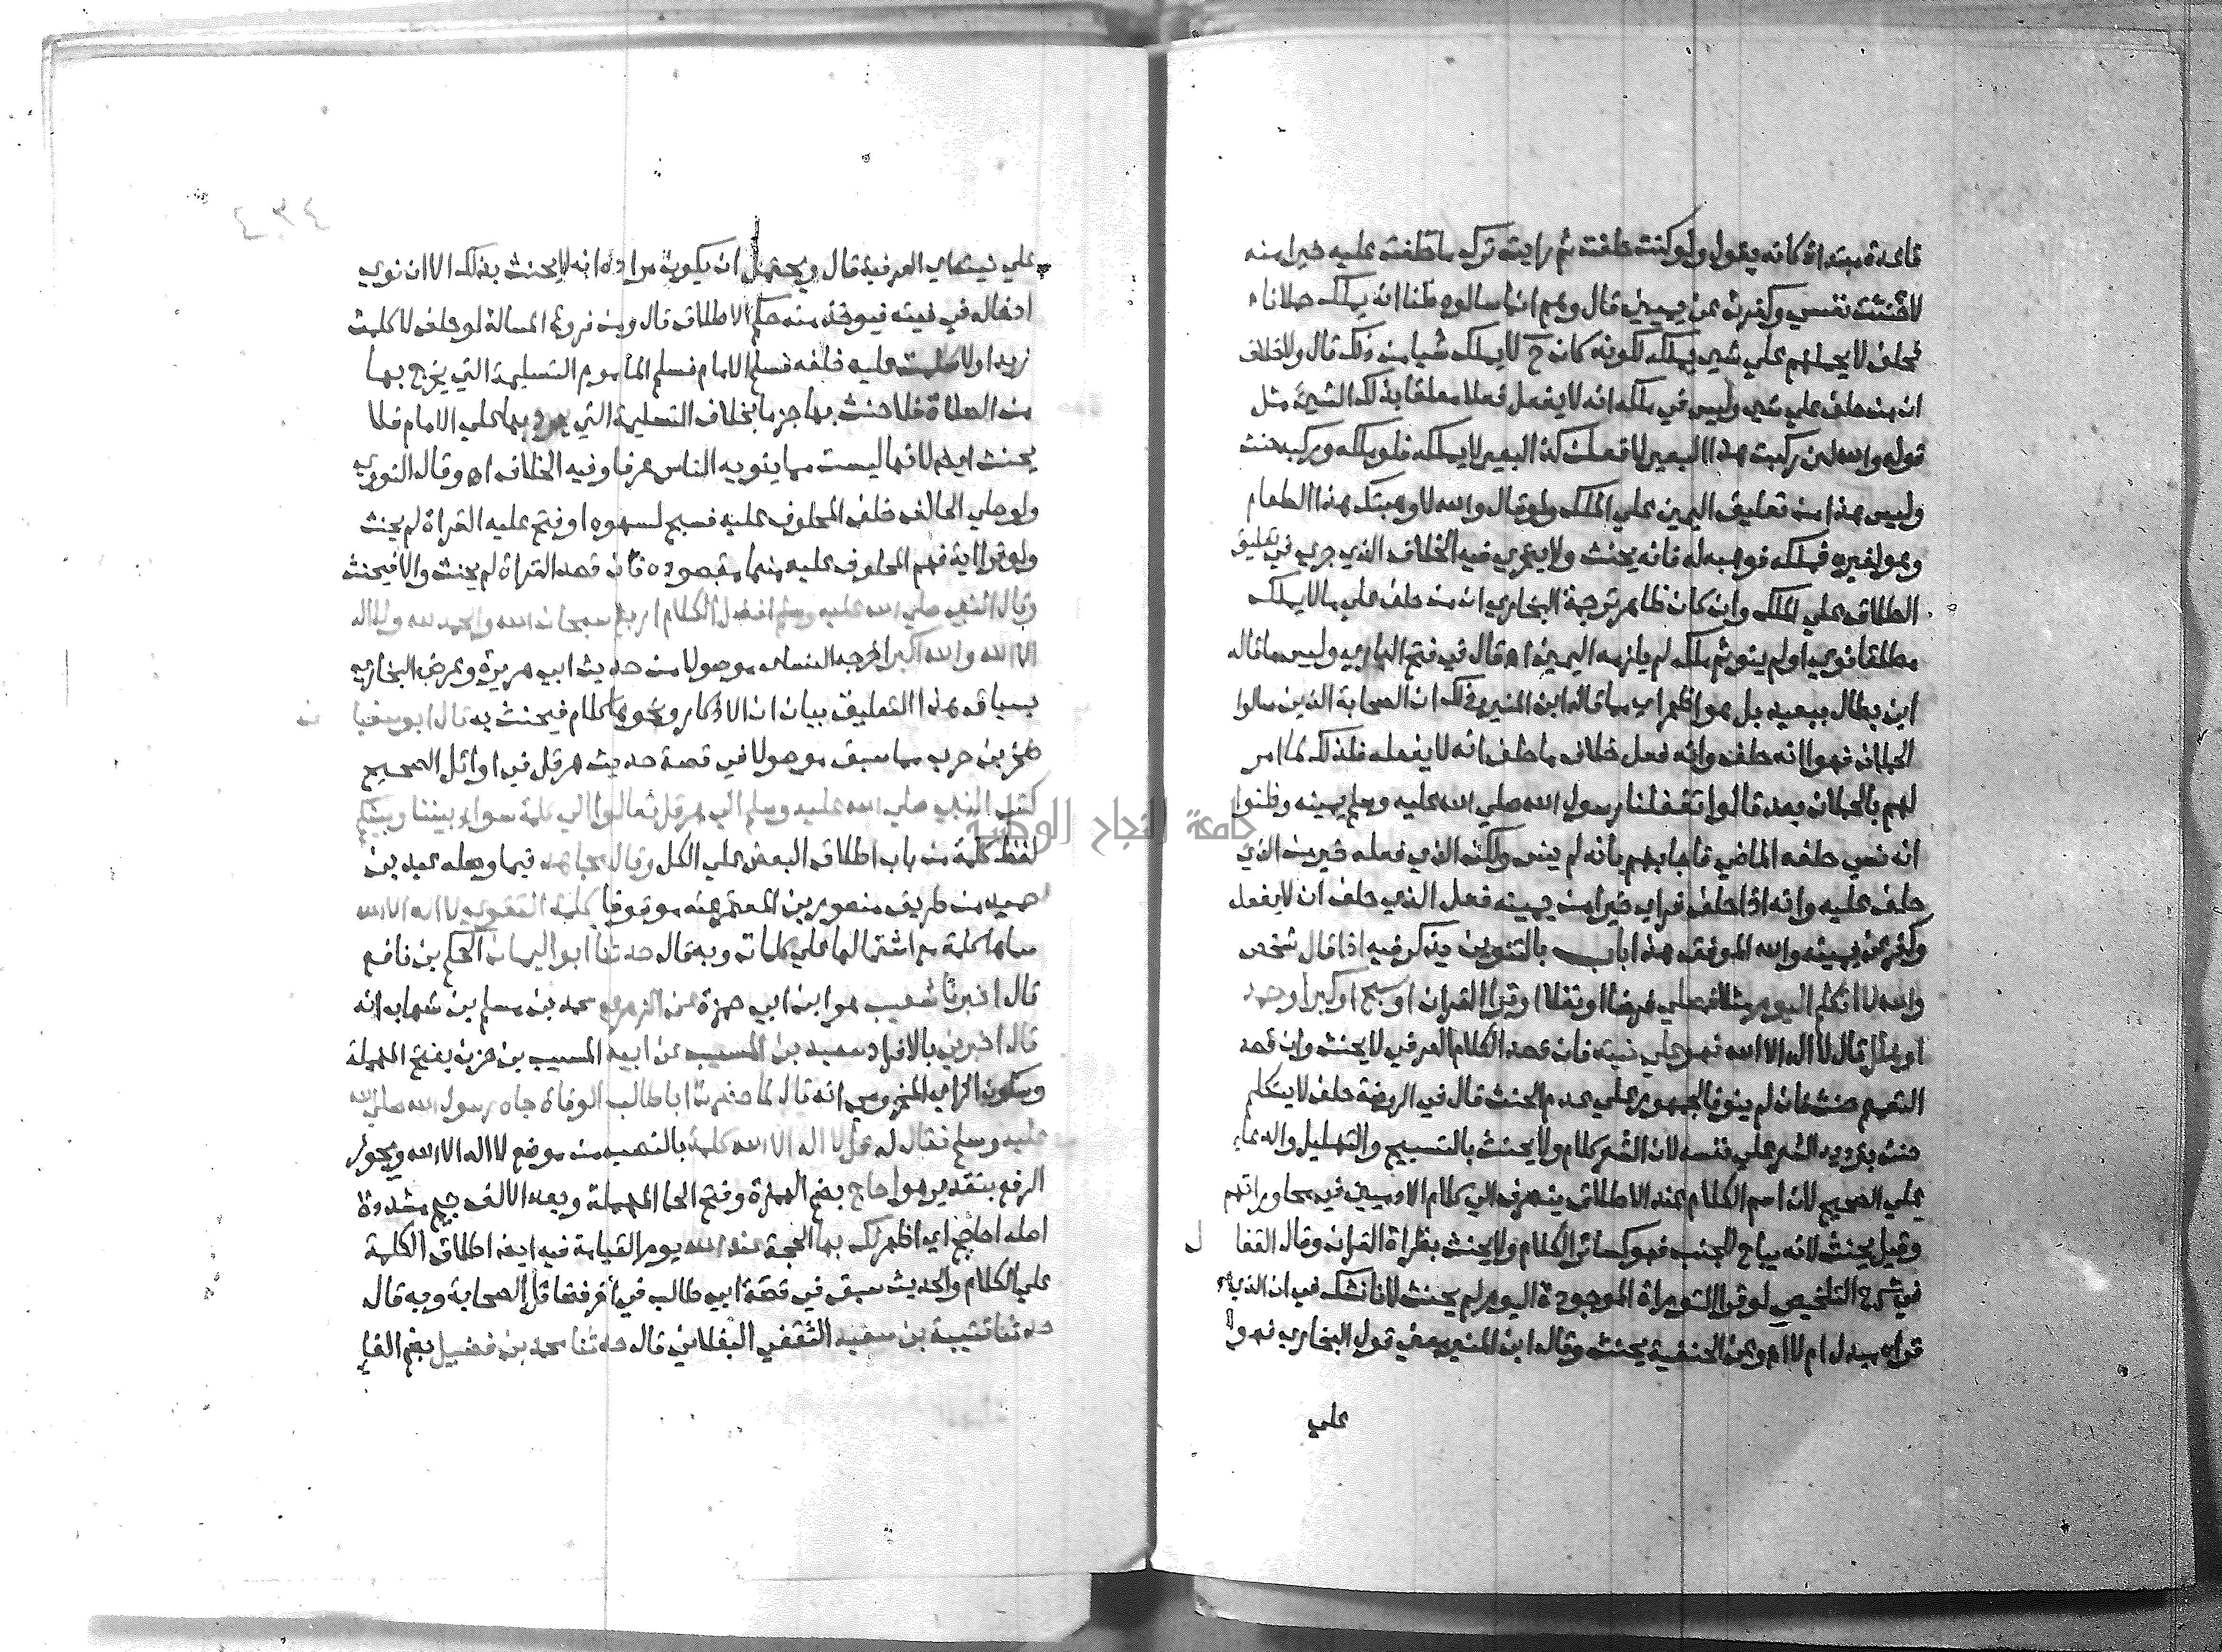 قاعدة مبتداة كانه يقول ولو كنت حلفت ثم رايت ترك ما حلفت عليه خيرا منه
لاحنثت نفسي وكفرت عن يميني قال وهم انما سالوه ظنا انه يملك حملانا
فحلف لا يحملهم علي شي يملكه لكونه كان ح لا يملك شيا من ذلك قال ولا خلاف
ان من حلف علي شي وليس في ملكه انه لا يفعل فعلا معلقا بذلك الشي مثل
قوله والله لين ركبت هذا البعير لافعلن كذا البعير لا يملكه فلو ملكه وركبه حنث
وليس هذا من تعليق اليمين علي الملك ولو قال والله لا وهبتك هذا الطعام
وهو لغيره فملكه فوهبه له فانه يحنث ولا يجري فيه الخلاف الذي جري في تعليق
الطلاق علي الملك وان كان ظاهر ترجمة البخاري ان من حلف علي ما لا يملك
مطلقا نوي او لم ينو ثم ملكه لم يلزمه اليمين اه قال في فتح الباري وليس ما قاله
ابن بطال ببعيد بل هو اظهر اي مما قاله ابن المنير وذلك ان الصحابة الذين سالوا
الحملان فهموا انه حلف وانه فعل خلاف ما حلف انه لا يفعله فلذلك لما امر
لهم بالحملان بعد قالوا تغفلنا رسول الله صلي الله عليه وسلم يمينه وظنوا
انه نسي حلفه الماضي فاجابهم بانه لم ينس ولكن الذي فعله خير من الذي
حلف عليه وانه اذا حلف فراي خيرا من يمينه فعل الذي حلف ان لا يفعله
وكفر عن يمينه والله الموفق هذا باب بالتنوين يذكر فيه اذا قال شخص
والله لا اتكلم اليوم مثلا فصلي فرضا او نفلا او قرا القران او سبح او كبر او حمد
او هلل قال لا اله الا الله فهو علي نيته فان قصد الكلام العرفي لا يحنث وان قصد
التعميم حنث فان لم ينو فالجمهور علي عدم الحنث قال في الروضة حلف لا يتكلم
حنث بترديد الشعر علي نفسه لان الشعر كلام ولا يحنث بالتسبيح والتهليل والدعا
علي الصحيح لان اسم الكلام عند الاطلاق ينصرف الي كلام الادميين في محاوراتهم
وقيل يحنث لانه يباح للجنب فهو كسائر الكلام ولا يحنث بقراة القران وقال القفال
في شرح التلخيص لو قرا التوراة الموجودة اليوم لم يحنث لانا نشك في ان الذي
قراه مبدل ام لا اه وعن الحنفية يحنث وقال ابن المنير معني قول البخاري فهو
علي
علي نيته اي العرفية قال ويحتمل ان يكون مراده انه لا يحنث بذلك الا ان نوي
ادخاله في نيته فيوخذ منه حكم الاطلاق قال ومن فروع المسالة لو حلف لا كلمت
زيدا ولا سلمت عليه فصلي خلفه فسلم الامام فسلم الماموم التسليمة التي يخرج بها
من الصلاة فلا حنث بها جزما بخلاف التسليمة التي يرد بها علي الامام فلا
يحنث ايضا لانها ليست مما ينويه الناس عرفا وفيه الخلاف اه وقال النووي
ولو صلي الحالف خلف المحلوف عليه فسبح لسهوه او فتح عليه القراة لم يحنث
ولو قرا اية فهم المحلوف عليه منها مقصوده فان قصد القراة لم يحنث والا فيحنث
وقال النبي صلي الله عليه وسلم افضل الكلام اربع سبحان الله والحمد لله ولا اله
الا الله والله اكبر اخرجه النسائي موصولا من حديث ابي هريرة وغرض البخاري
بسياق هذا التعليق بيان ان الاذكار ونحوها كلام فيحنث به قال ابو سفيان
صخر بن حرب مما سبق موصولا في قصة حديث هرقل في اوائل الصحيح
كتب النبي صلي الله عليه وسلم الي هرقل تعالوا الي كلمة سواء بيننا وبينكم
لفظ كلمة من باب اطلاق البعض علي الكل وقال مجاهد فيما وصله عبد بن
حميد من طريق منصور بن المعتمر عنه موقوفا كلمة التقوي لا اله الا الله
سماها كلمة مع اشتمالها علي كلمات وبه قال حدثنا ابو اليمان الحكم بن نافع
قال اخبرنا شعيب هو ابن ابي حمزة عن الزهري محمد بن مسلم بن شهاب انه
قال اخبرني بالافراد سعيد بن المسيب عن ابيه المسيب بن حزن بفتح المهملة
وسكون الزاي المخزومي انه قال لما حضرت ابا طالب الوفاة جاه رسول الله صلي الله
عليه وسلم فقال له قل لا اله الا الله كلمة بالنصب من موضع لا اله الا الله ويجوز
الرفع بتقدير هو احاج بضم الهمزة وفتح الحا المهملة وبعد الالف جيم مشددة
اصله احاجج اي اظهر لك بها الحجة عند الله يوم القيامة فيه ايضا اطلاق الكلمة
علي الكلام والحديث سبق في قصة ابي طالب في اخر فضائل الصحابة وبه قال
حدثنا قتيبة بن سعيد الثقفي البغلاني قال حدثنا محمد بن فضيل بضم الفا
جامعة النجاح الوطنية